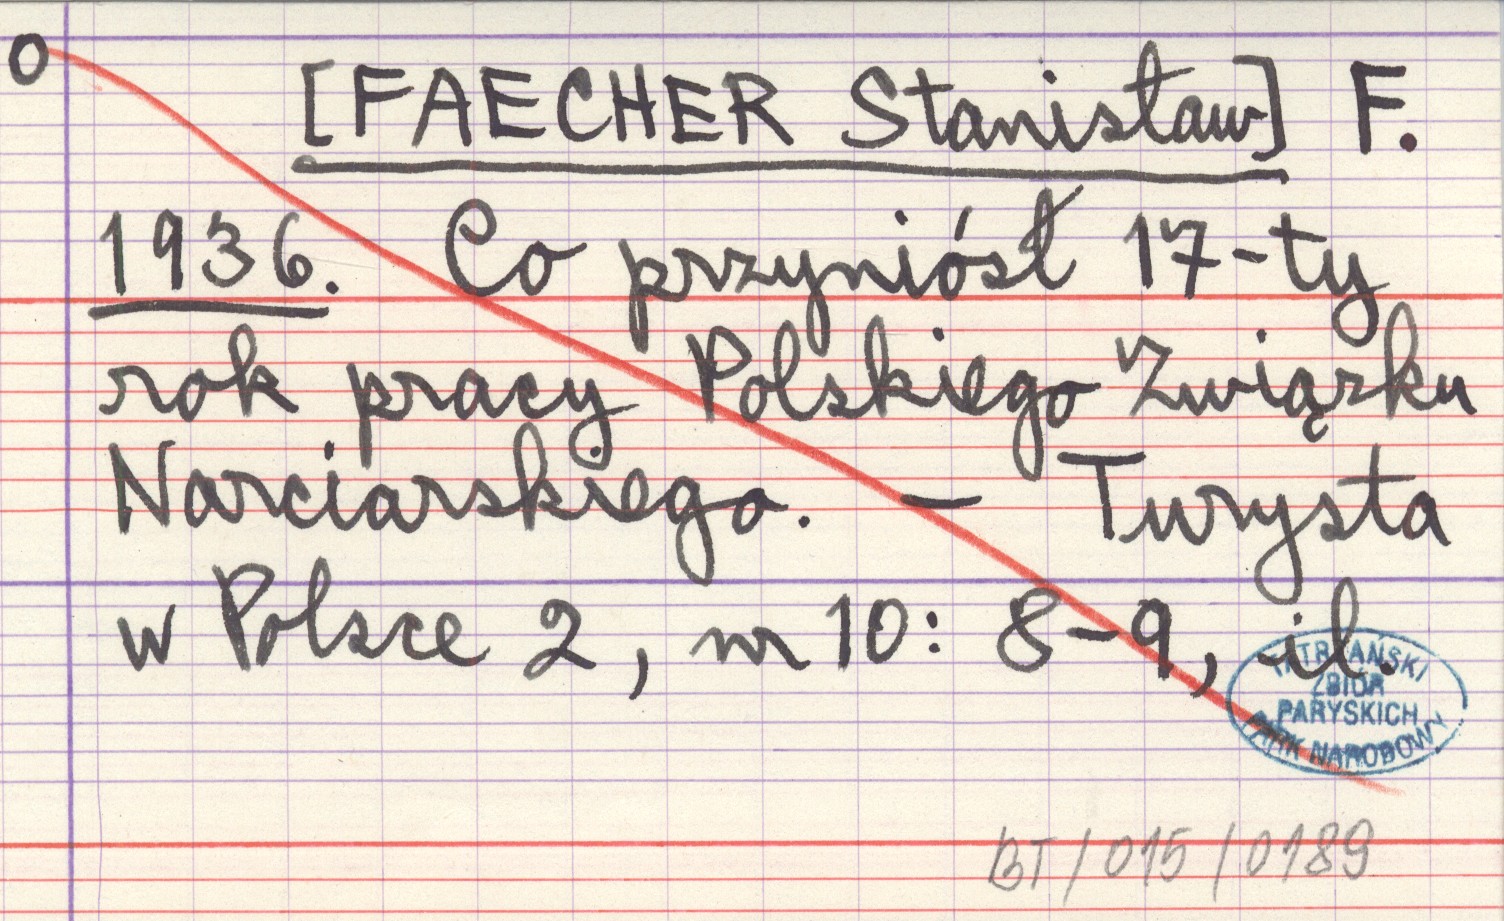 O
[FAECHER Stanisław] F.
1936. Co przyniósł 17-ty
rok pracy Polskiego Związku
Narciarskiego. – Turysta
w Polsce 2, nr 10: 8-9, il.
TATRZAŃSKI
ZBIÓR
PARYSKICH
PARK NARODOWY
BT/015/0189